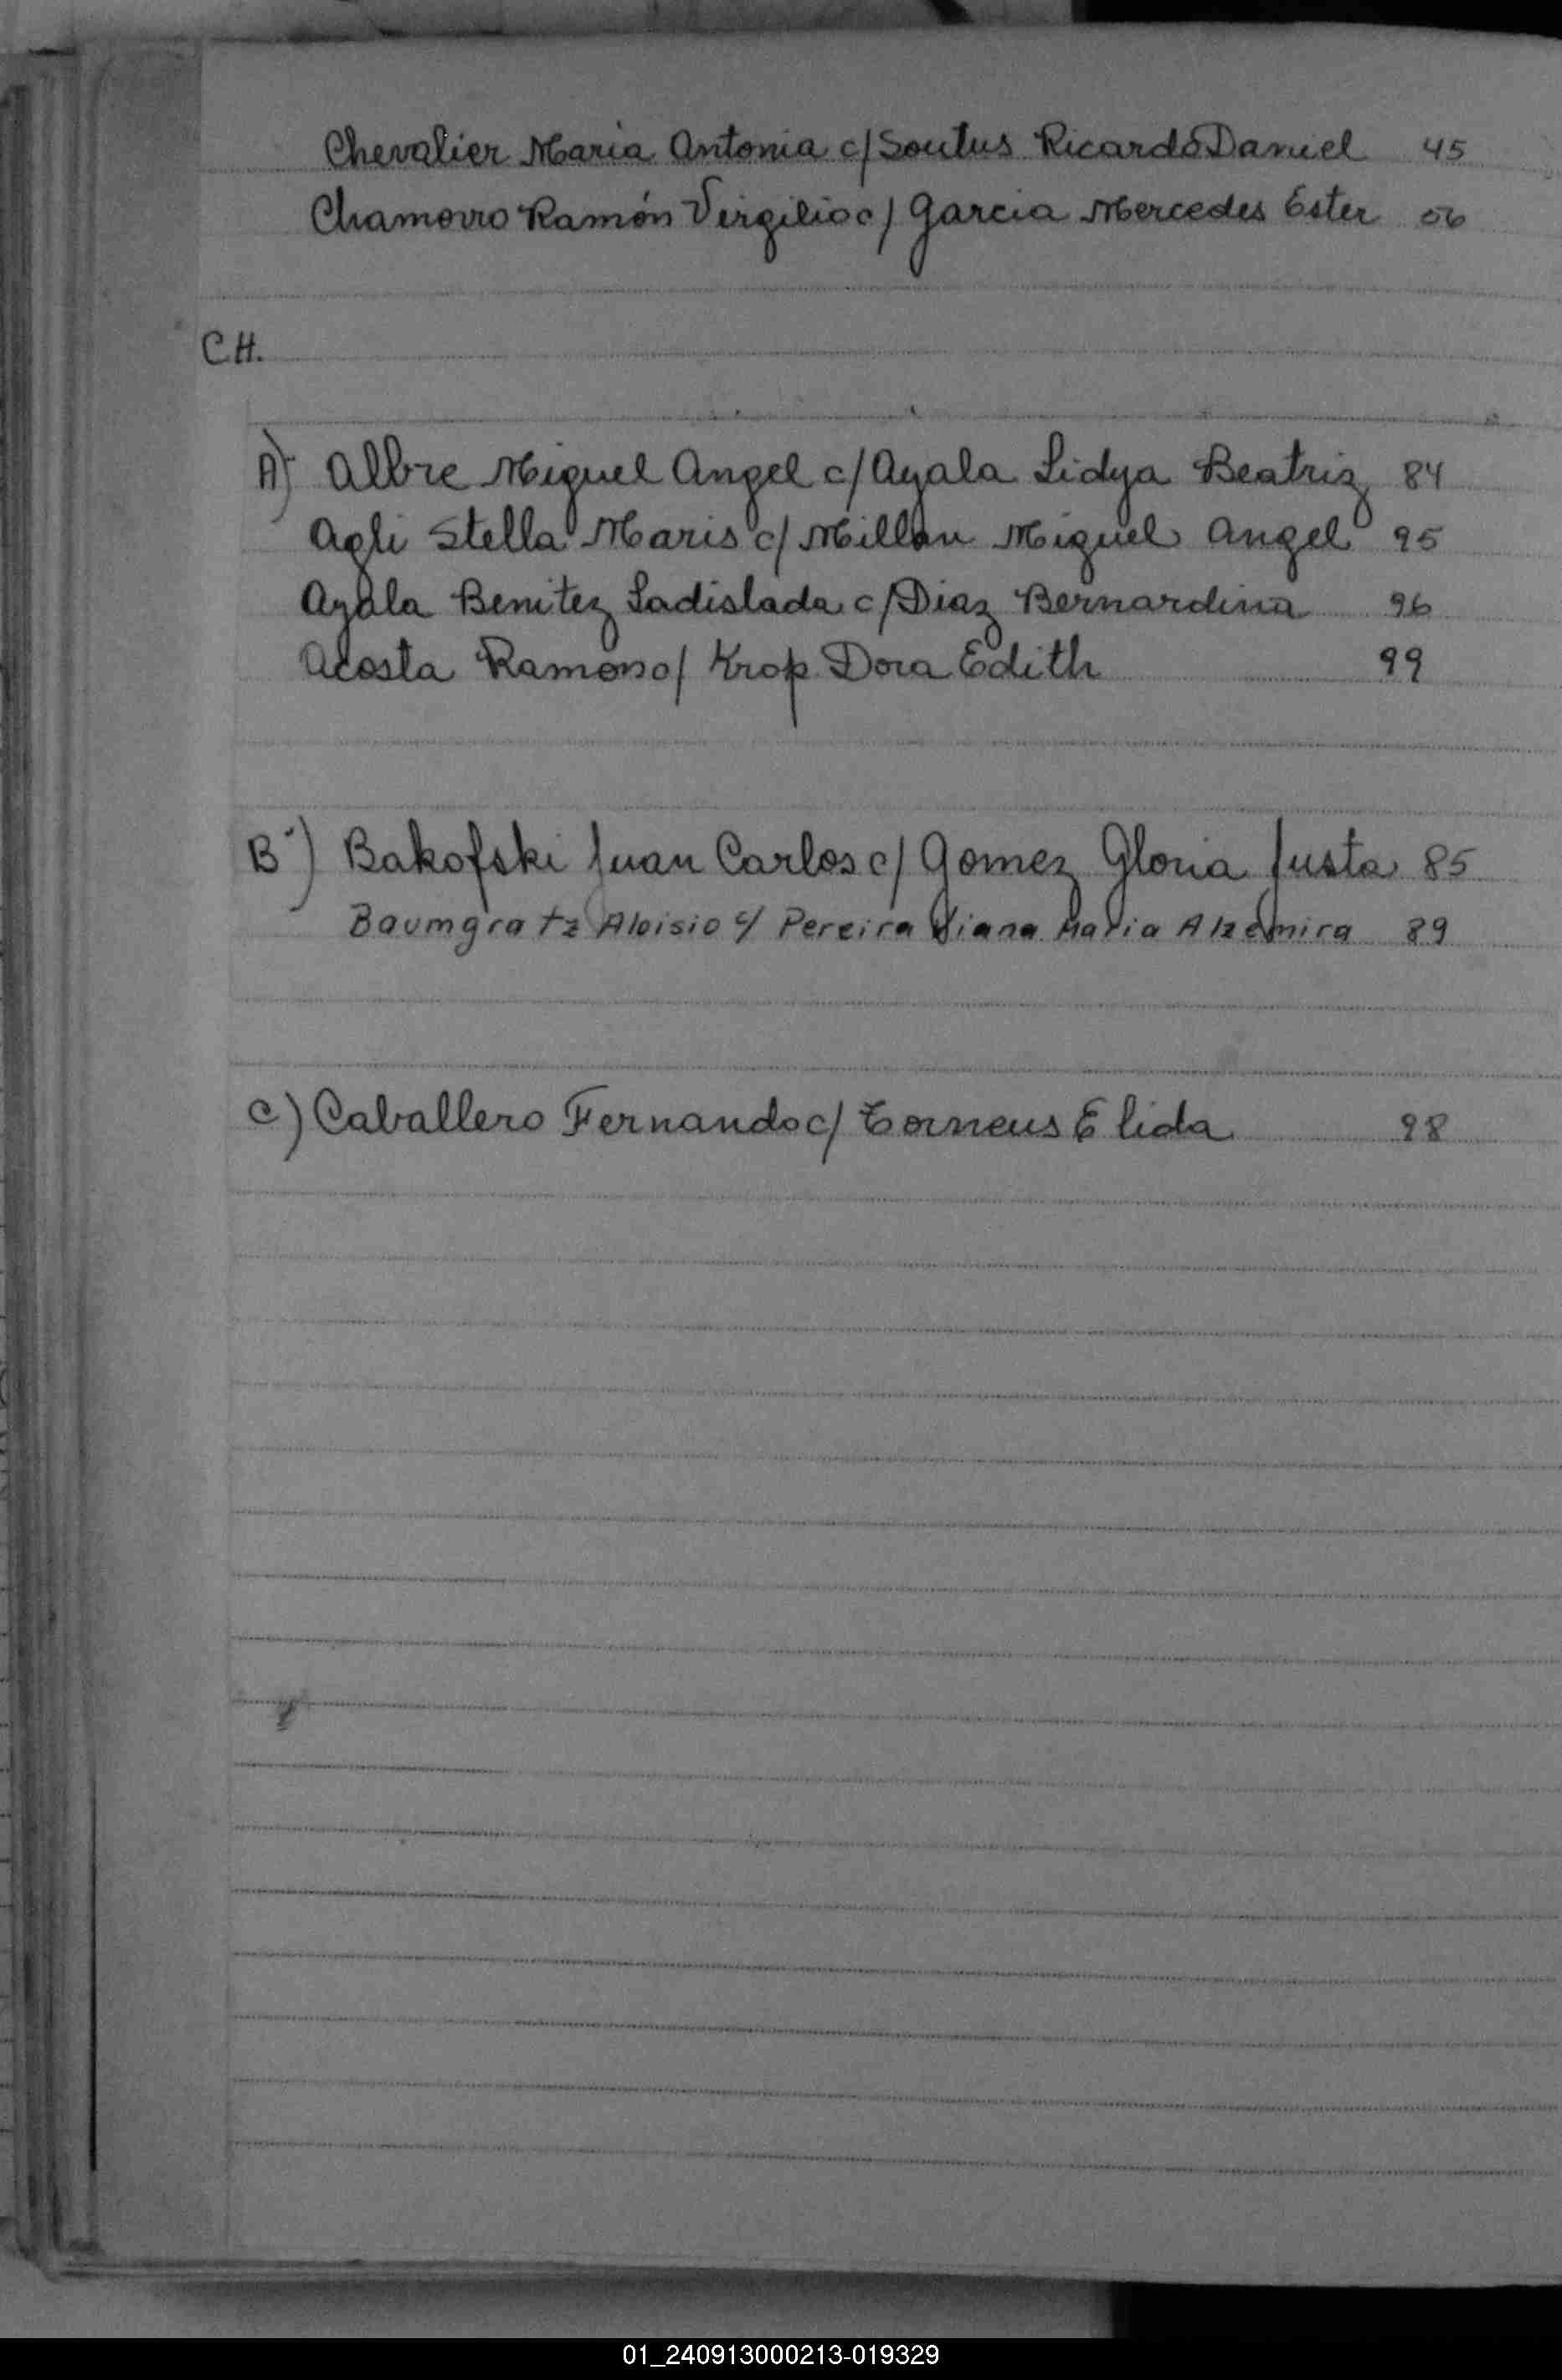 Chevalier Maria Antonia c/ Soutus Ricardo Daniel 45
Chamorro Ramón Virgilio c/ Garcia Mercedes Ester 56
CH.
A) Albre Miguel Angel c/ Ayala Lidya Beatriz 84
Agli Stella Maris c/ Millan Miguel Angel 95
Ayala Benitez Ladislada c/ Diaz Bernardina 96
Acosta Ramon c/ Krop Dora Edith 99
B) Bakofski Juan Carlos c/ Gomez Gloria Justa 85
Baumgratz Aloisio c/ Pereira Viana Maria Alzemira 89
C) Caballero Fernando c/ Torneus Elida 98
01_240913000213-019329